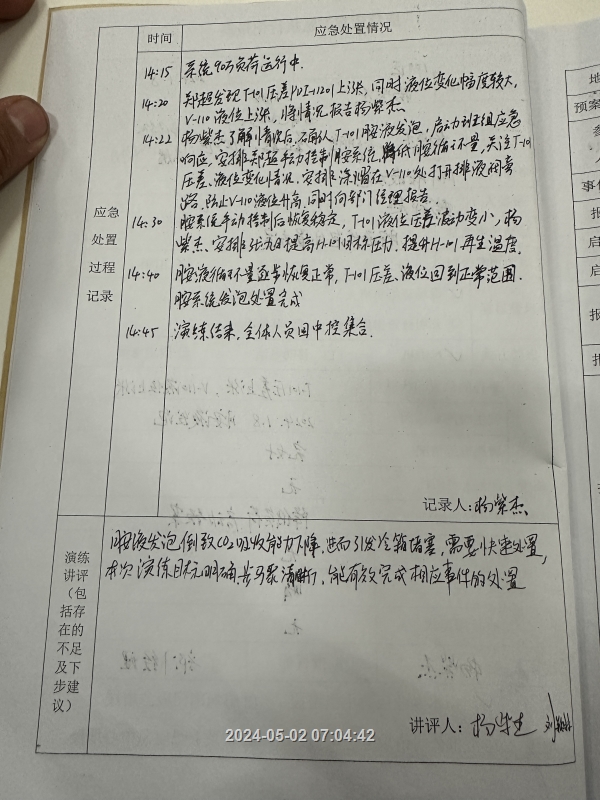 时间
应急处置情况
应急
处置
过程
记录
14:15
系统90万负荷运行中.
14:20
郑超发现T-101压差PDI-11201上涨,同时液位变化幅度较大,
V-110液位上涨,将情况报告杨紫杰.
14:22
杨紫杰了解情况后,确认T-101胺液发泡,启动班组应急
响应,安排郑超手动控制胺系统,降低胺循环量,关注T-101
压差、液位变化情况,安排涂 在V-110处打开排液阀
防止V-110液位升高,同时向部门经理报告.
14:30
胺系统手动控制后恢复稳定,T-101液位压差波动变小,杨
紫杰安排 提高H-101目标压力,提升H-101再生温度.
14:40
胺液循环量逐步恢复正常,T-101压差、液位回到正常范围.
胺系统发泡处置完成
14:45
演练结束,全体人员回中控集合.
记录人:杨紫杰.
演练
讲评
(包
括存
在的
不足
及下
步建
议)
胺液发泡倒致CO2吸收能力下降,进而引发冷箱堵塞,需要快速处置,
本次演练目标明确,步骤清晰,能有效完成相应事件的处置
讲评人:
2024-05-02 07:04:42
地
预案
参
人
事件
启
启
报
报